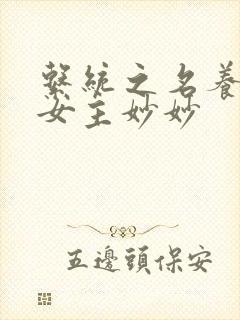 繫統之名養
女主妙妙
五邊頭保安